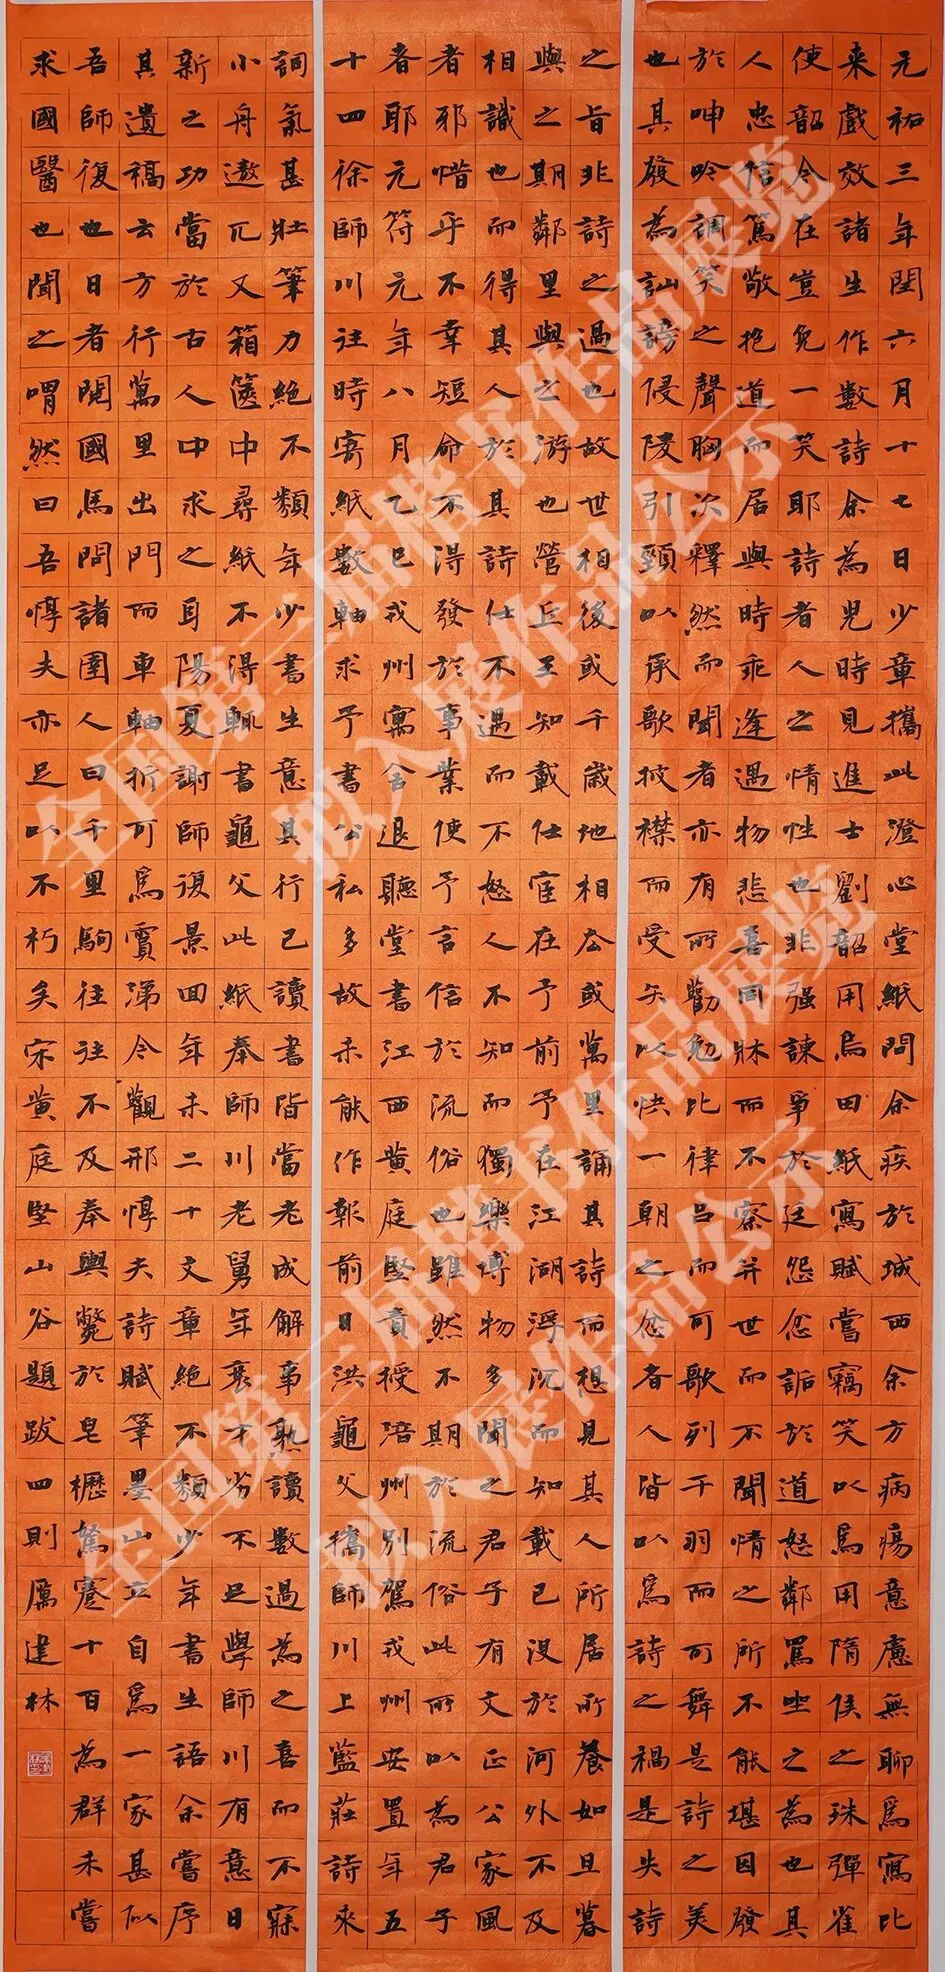 元祐三年閏六月十七日少章攜此澄心堂紙問余疾於城西余方病瘍意慮無聊爲寫比
来戲效諸生作數詩余為兒時見進士劉韶用烏田紙寫賦嘗竊笑以爲用隋侯之珠彈雀
使韶令在豈免一笑耶詩者人之情性也非强諫爭於廷怨忿詬於道怒鄰罵坐之為也其
人忠信篤敬抱道而居與時乖逢遇物悲喜同牀而不察并世而不聞情之所不能堪因發
於呻吟調笑之聲胸次釋然而聞者亦有所勸勉比律呂而可歌列干羽而可舞是詩之美
也其發為訕謗侵陵引頸以承歌披襟而受矢以快一朝之忿者人皆以爲詩之禍是失詩
之旨非詩之過也故世相後或千歲地相去或萬里誦其詩而想見其人所居所養如旦暮
與之期鄰里與之游也營丘王知載仕宦在予前予在江湖浮沉而知載已沒於河外不及
相識也而得其人於其詩仕不遇而不怒人不知而獨樂博物多聞之君子有文正公家風
者邪惜乎不幸短命不得發於事業使予言信於流俗也雖然不期於流俗此所以為君子
者耶元符元年八月乙巳戎州寓舍退聽堂書江西黃庭堅責授涪州別駕戎州安置年五
十四徐師川往時寄紙數軸求予書公私多故未能作報前日洪龜父攜師川上藍莊詩來
詞氣甚壯筆力絕不類年少書生意其行己讀書皆當老成解事熟讀數過為之喜而不寐
小舟遨兀又箱篋中尋紙不得輒書龜父此紙奉師川老舅年衰才劣不足學師川有意日
新之功當於古人中求之耳陽夏謝師復景回年未二十文章絕不類少年書生語余嘗序
其遺稿云方行萬里出門而車軸折可爲霣涕今觀邢惇夫詩賦筆墨山立自爲一家甚似
吾師復也日者閱國馬問諸圉人曰千里駒往往不及奉輿斃於皂櫪駑蹇十百為群未嘗
求國醫也聞之喟然曰吾惇夫亦足以不朽矣宋黃庭堅山谷題跋四則厲建林
全国第三届楷书作品展览
拟入展作品公示
全国第三届楷书作品展览
拟入展作品公示